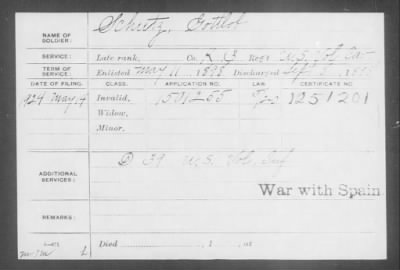 NAME OF SOLDIER: Schutz, Gottlob
SERVICE: Late rank, Co. Reg't U.S. Vol.
TERM OF SERVICE: Enlisted May 11, 1898 Discharged Sept
DATE OF FILING. CLASS. APPLICATION NO. LAW. CERTIFICATE NO.
1924 May Invalid, 1501255 1251201
Widow,
Minor.
ADDITIONAL SERVICES: D 39 U.S. Vol. Inf
War with Spain
REMARKS:
Died , 1 , at